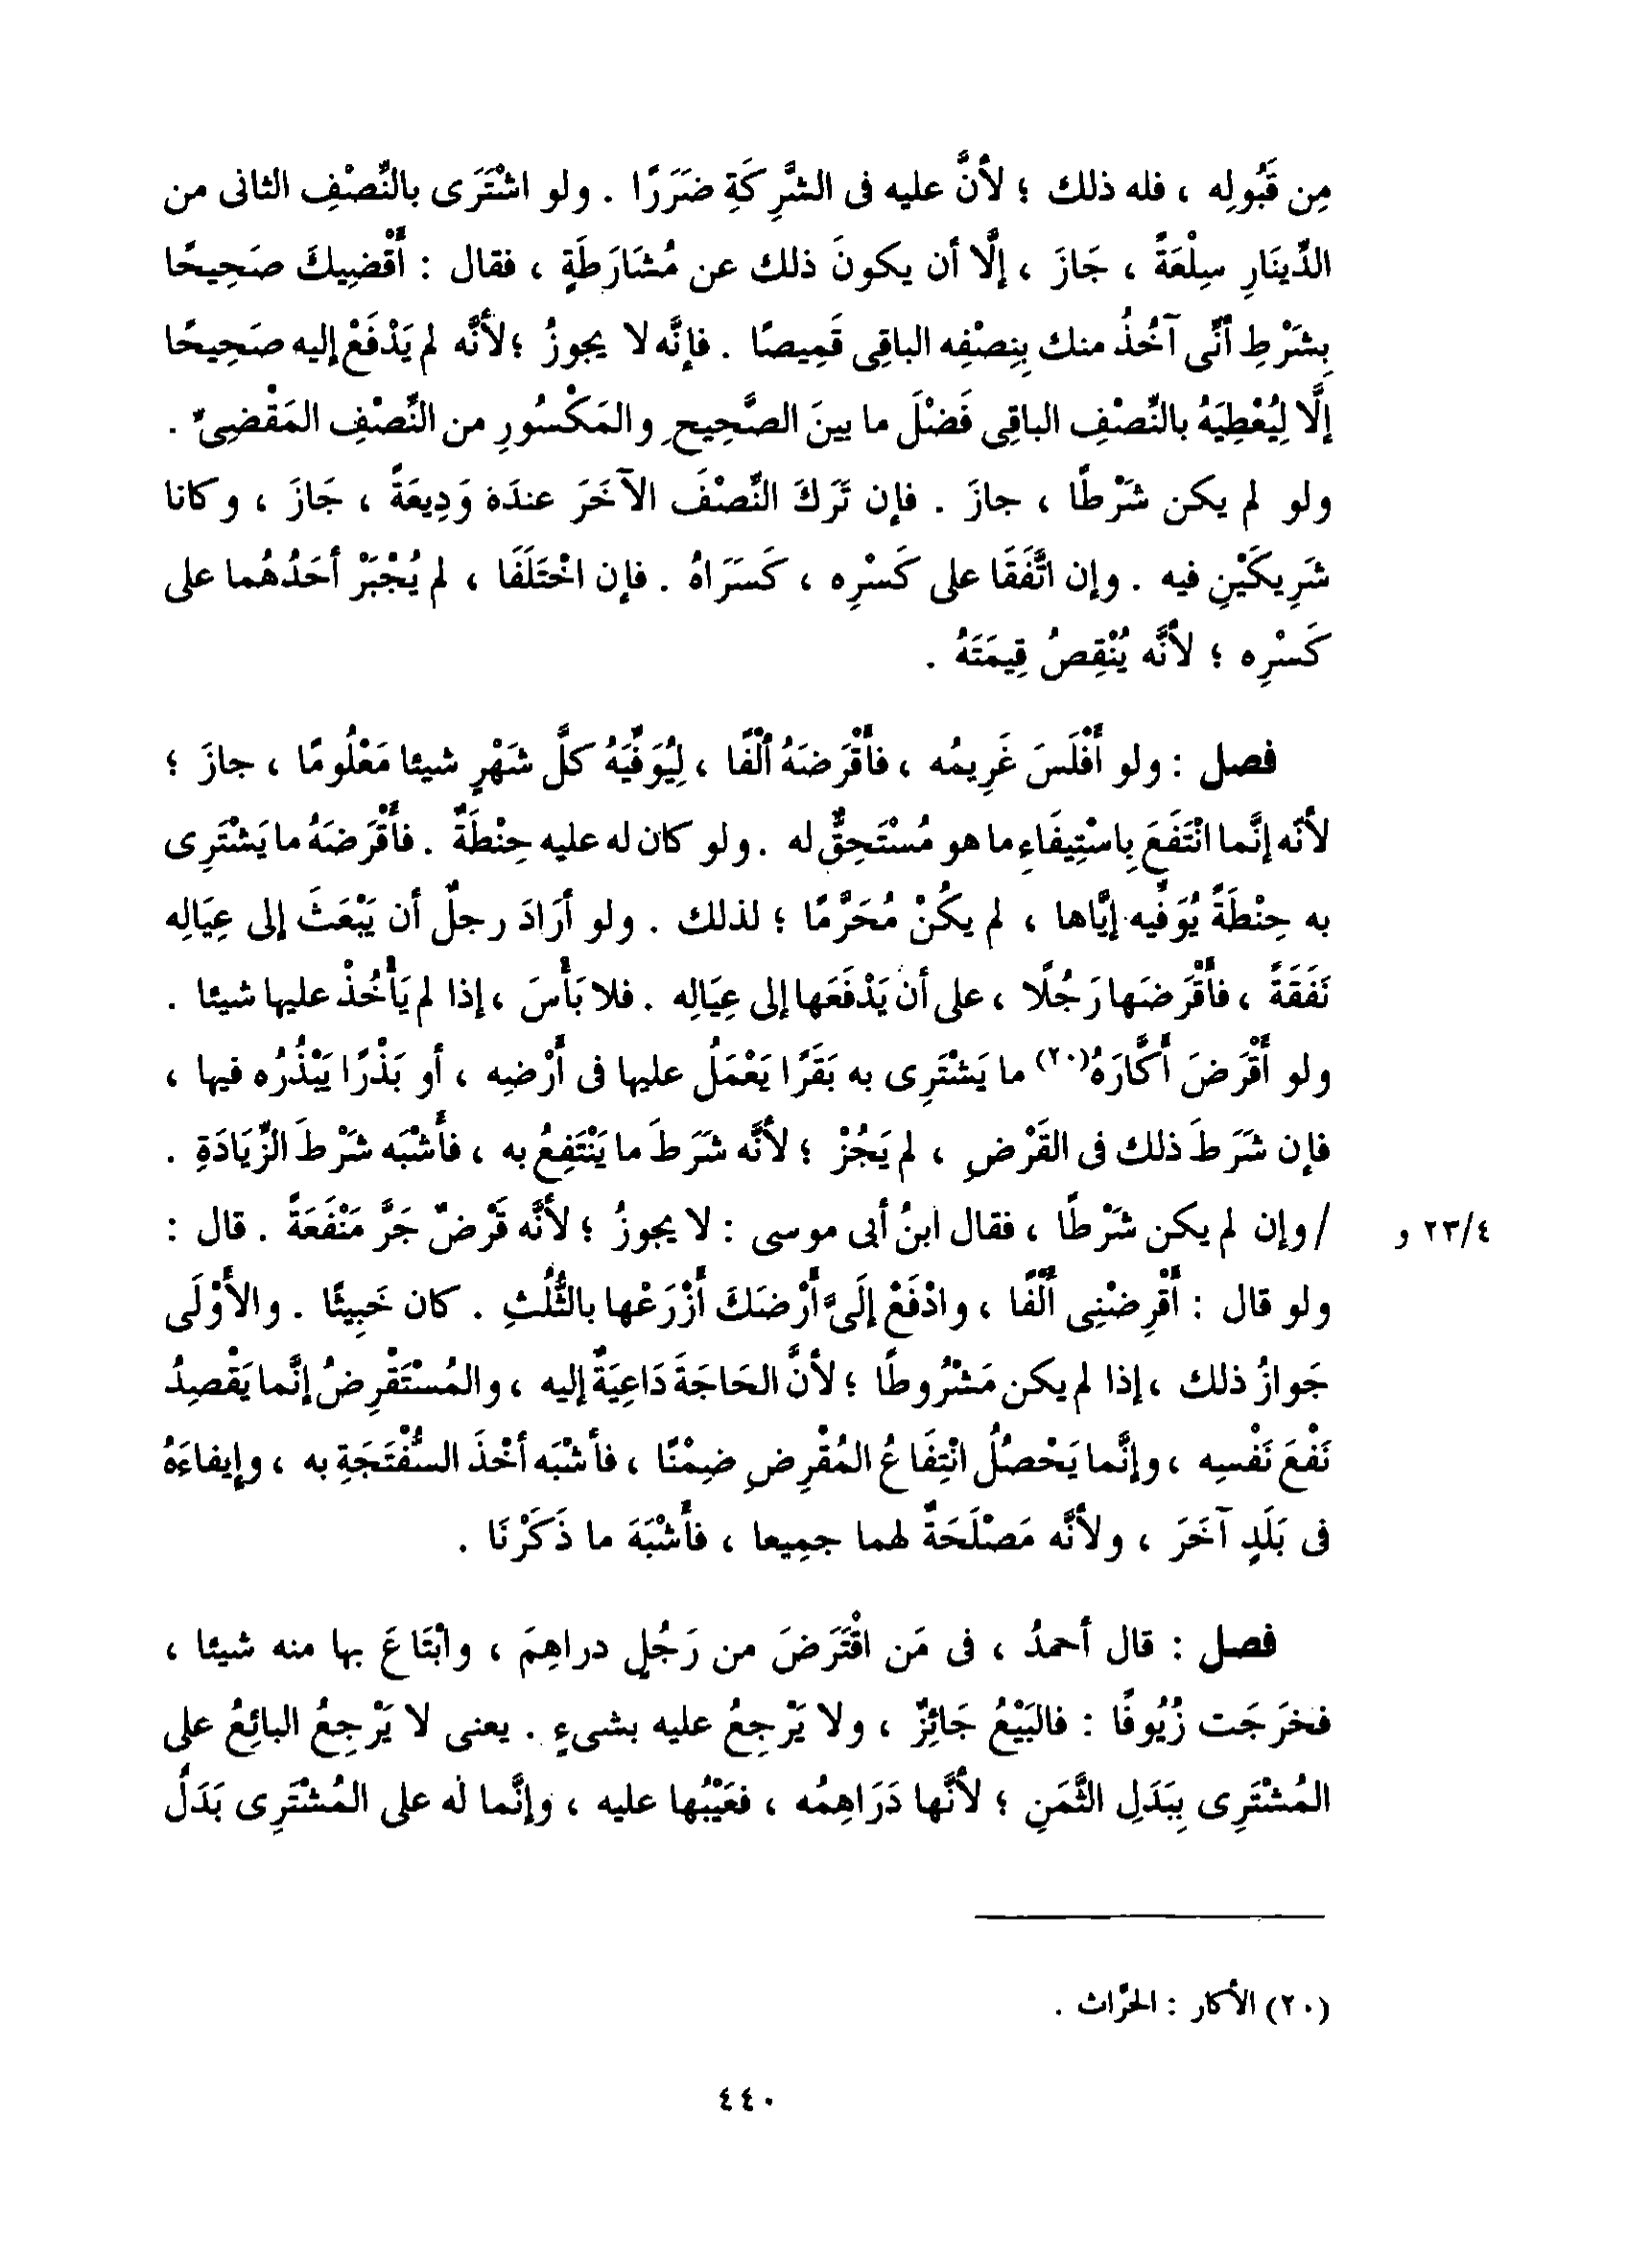 مِن قَبُولِه ، فله ذلك ؛ لأنَّ عليه فى الشَّرِكَةِ ضَرَرًا . ولو اشْتَرَى بالنِّصْفِ الثانى من
الدِّينَارِ سِلْعَةً ، جَازَ ، إلَّا أن يكونَ ذلك عن مُشَارَطَةٍ ، فقال : أَقْضِيكَ صَحِيحًا
بِشَرْطِ أنِّى آخُذُ منك بِنِصْفِه الباقِى قَمِيصًا . فإنَّه لا يجوزُ ؛ لأنَّه لم يَدْفَعْ إليه صَحِيحًا
إلَّا لِيُعْطِيَهُ بالنِّصْفِ الباقِى فَضْلَ ما بينَ الصَّحِيحِ والمَكْسُورِ من النِّصْفِ المَقْضِىِّ .
ولو لم يكن شَرْطًا ، جازَ . فإن تَرَكَ النِّصْفَ الآخَرَ عندَه وَدِيعَةً ، جَازَ ، وكانا
شَرِيكَيْنِ فيه . وإن اتَّفَقَا على كَسْرِه ، كَسَرَاهُ . فإن اخْتَلَفَا ، لم يُجْبَرْ أحَدُهُما على
كَسْرِه ؛ لأنَّه يُنْقِصُ قِيمَتَهُ .
فصل : ولو أَفْلَسَ غَرِيمُه ، فأَقْرَضَهُ ألْفًا ، لِيُوَفِّيَهُ كلَّ شَهْرٍ شيئا مَعْلُومًا ، جازَ ؛
لأنَّه إنَّما انْتَفَعَ بِاسْتِيفَاءِ ما هو مُسْتَحِقٌّ له . ولو كان له عليه حِنْطَةٌ . فأَقْرَضَهُ ما يَشْتَرِى
به حِنْطَةً يُوَفِّيه إيَّاها ، لم يكُنْ مُحَرَّمًا ؛ لذلك . ولو أرَادَ رجلٌ أن يَبْعَثَ إلى عِيَالِه
نَفَقَةً ، فأَقْرَضَها رَجُلًا ، على أن يَدْفَعَها إلى عِيَالِه . فلا بَأْسَ ، إذا لم يَأْخُذْ عليها شيئا .
ولو أَقْرَضَ أَكَّارَهُ(٢٠) ما يَشْتَرِى به بَقَرًا يَعْمَلُ عليها فى أَرْضِه ، أو بَذْرًا يَبْذُرُه فيها ،
فإن شَرَطَ ذلك فى القَرْضِ ، لم يَجُزْ ؛ لأنَّه شَرَطَ ما يَنْتَفِعُ به ، فأَشْبَه شَرْطَ الزِّيَادَةِ .
/ وإن لم يكن شَرْطًا ، فقال ابنُ أبى موسى : لا يجوزُ ؛ لأنَّه قَرْضٌ جَرَّ مَنْفَعَةً . قال :
٢٣/٤ و
ولو قال : أَقْرِضْنِى ألْفًا ، وادْفَعْ إلَىَّ أَرْضَكَ أَزْرَعْها بالثُّلُثِ . كان خَبِيثًا . والأَوْلَى
جَوازُ ذلك ، إذا لم يكن مَشْرُوطًا ؛ لأنَّ الحَاجَةَ دَاعِيَةٌ إليه ، والمُسْتَقْرِضُ إنَّما يَقْصِدُ
نَفْعَ نَفْسِه ، وإنَّما يَحْصُلُ انْتِفَاعُ المُقْرِضِ ضِمْنًا ، فأشْبَه أخْذَ السُّفْتَجَةِ به ، وإيفاءَهُ
فى بَلَدٍ آخَرَ ، ولأنَّه مَصْلَحَةٌ لهما جمِيعا ، فأَشْبَهَ ما ذَكَرْنَا .
فصل : قال أحمدُ ، فى مَن اقْتَرَضَ من رَجُلٍ دراهِمَ ، وابْتَاعَ بها منه شيئا ،
فخرَجَت زُيُوفًا : فالبَيْعُ جَائِزٌ ، ولا يَرْجِعُ عليه بشىءٍ . يعنى لا يَرْجِعُ البائِعُ على
المُشْتَرِى بِبَدَلِ الثَّمَنِ ؛ لأنَّها دَرَاهِمُه ، فعَيْبُها عليه ، وإنَّما لَه على المُشْتَرِى بَدَلُ
(٢٠) الأكار : الحرَّاث .
٤٤٠